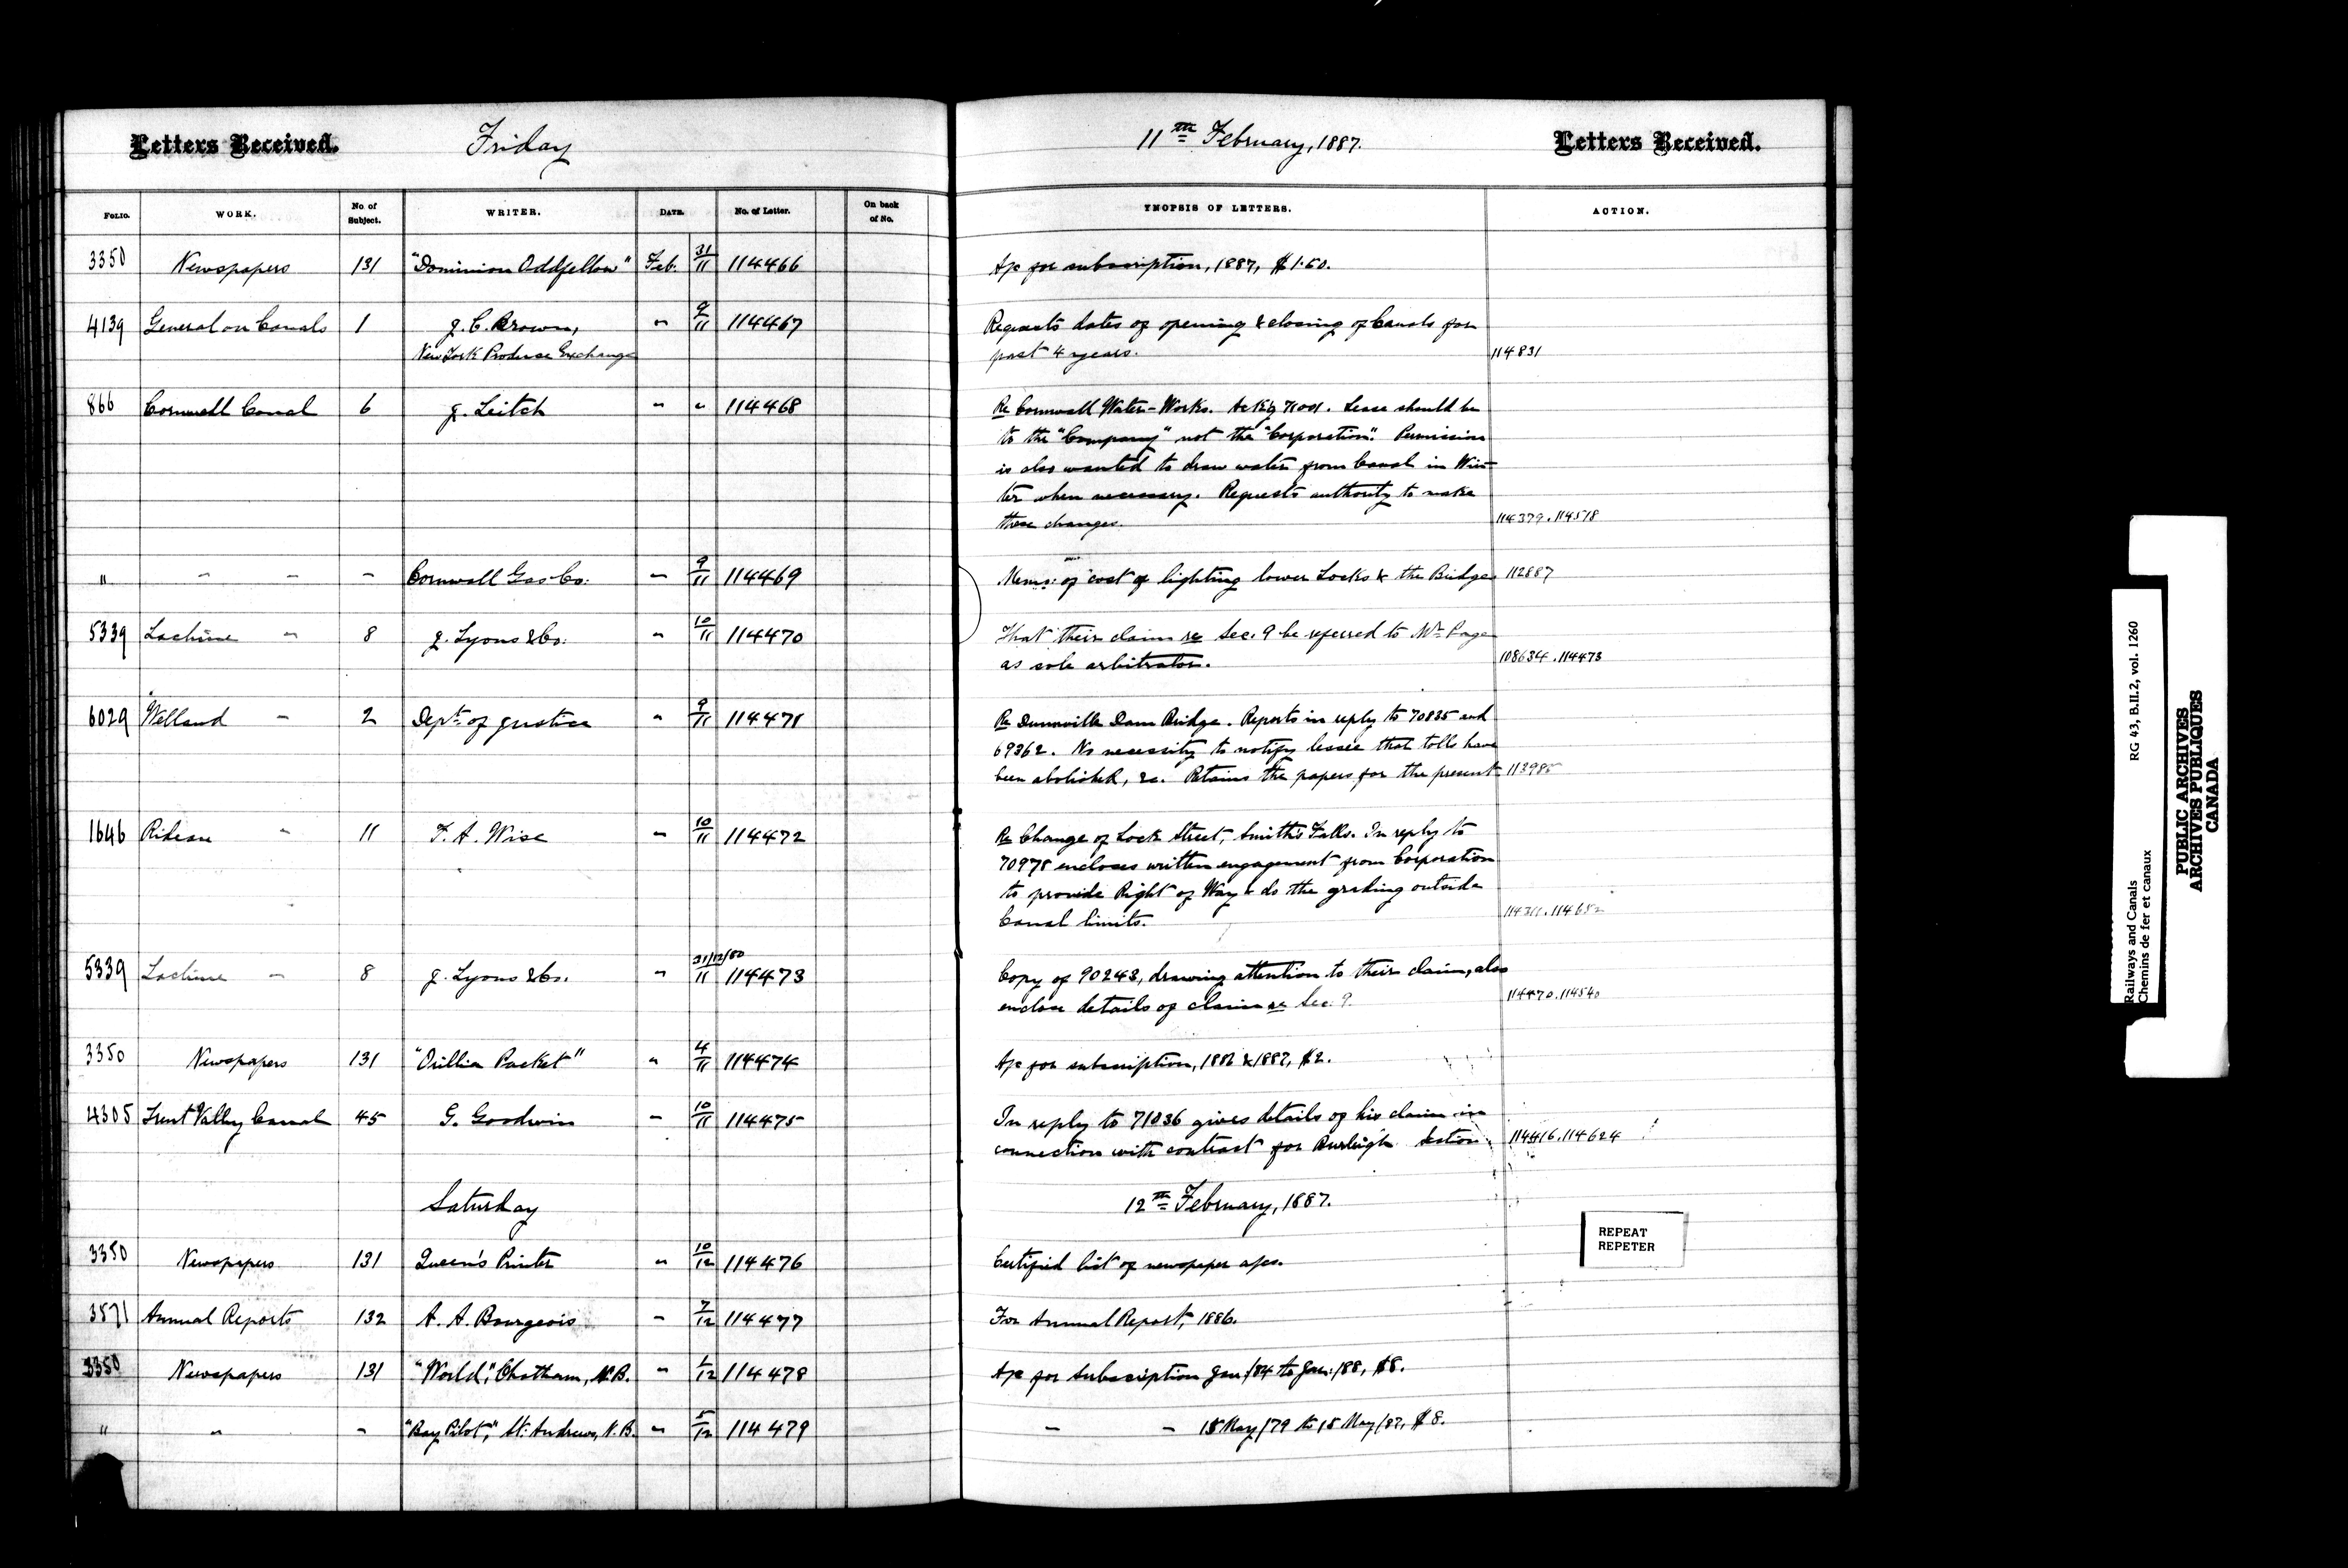 Letters Received. Friday 11th February, 1887. Letters Received.
FOLIO. WORK. No. of Subject. WRITER. DATE. No. of Letter. On back of No. YNOPSIS OF LETTERS. ACTION.
3350 Newspapers 131 "Dominion Oddfellow" Feb. 31/11 114466 A/c for subscription, 1887, $1.50.
4139 General on Canals 1 J. C. Brown, " 9/11 114467 Requests dates of opening & closing of Canals for
New York Produce Exchange past 4 years. 114831
866 Cornwall Canal 6 J. Leitch " " 114468 Re Cornwall Water-Works. Ack'g 71001. Lease should be
to the "Company" not the "Corporation". Permission
is also wanted to draw water from Canal in Win-
ter when necessary. Requests authority to make
these changes. 114379. 114518
" " " " Cornwall Gas Co: " 9/11 114469 Memo: of cost of lighting lower Locks & the Bridge 112887
5339 Lachine " 8 J. Lyons & Co: " 10/11 114470 That their claim re Sec. 9 be referred to Mr Page
as sole arbitrator. 108634. 114473
6029 Welland " 2 Dept. of Justice " 9/11 114471 Re Dunnville Dam Bridge. Reports in reply to 70835 and
69362. No necessity to notify lessee that tolls have
been abolished, &c. Retains the papers for the present 113985
1646 Rideau " 11 F. A. Wise " 10/11 114472 Re Change of Lock Street, Smith's Falls. In reply to
70978 encloses written engagement from Corporation
to provide Right of Way & do the grading outside
Canal limits. 114682
5339 Lachine " 8 J. Lyons & Co. " 31/12/80 11 114473 Copy of 90243, drawing attention to their claim, also
enclose details of claim re Sec. 9. 114470. 114540
3350 Newspapers 131 "Orillia Packet" " 4/11 114474 A/c for subscription, 1886 & 1887, $2.
4305 Trent Valley Canal 45 G. Goodwin " 10/11 114475 In reply to 71036 gives details of his claim in
connection with contract for Burleigh Section. 114416. 114624
Saturday 12th February, 1887.
3350 Newspapers 131 Queen's Printer " 10/12 114476 Certified list of newspaper a/cs.
3571 Annual Reports 132 A. A. Bourgeois " 7/12 114477 For Annual Report, 1886.
3350 Newspapers 131 "World", Chatham, N.B. " /12 114478 A/c for Subscription Jan:/84 to Jan:/88, $8.
" " " "Bay Pilot", St. Andrews, N.B. " 5/12 114479 " " 15 May/79 to 15 May/87, $8.
REPEAT
REPETER
Railways and Canals RG 43, B.II.2, vol. 1260
Chemins de fer et canaux
PUBLIC ARCHIVES
ARCHIVES PUBLIQUES
CANADA